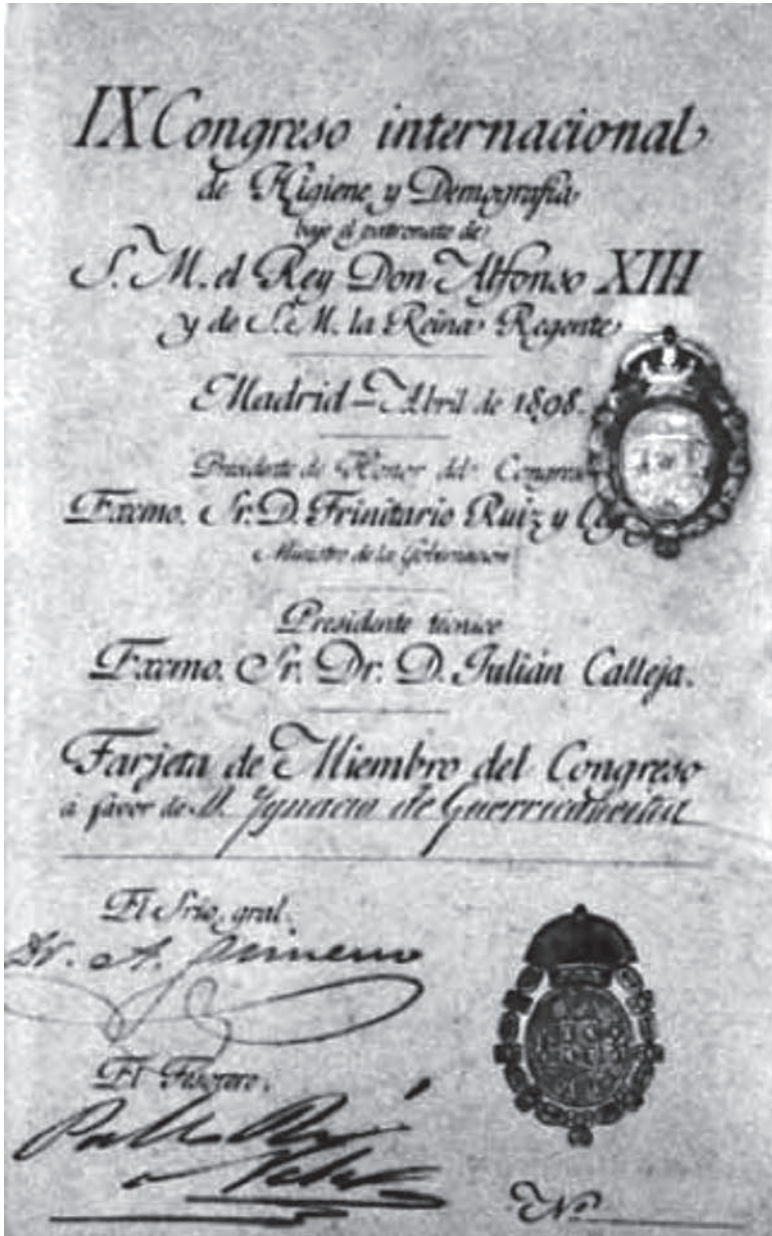 IX Congreso internacional
de Higiene y Demografía
bajo el patronato de
S. M. el Rey Don Alfonso XIII
y de S. M. la Reina Regente
Madrid — Abril de 1898.
Presidente de Honor del Congreso
Excmo. Sr. D. Trinitario Ruiz y
Ministro de la Gobernación
Presidente técnico
Excmo. Sr. Dr. D. Julián Calleja.
Tarjeta de Miembro del Congreso
á favor de D. Ignacio de
El Srio. gral.
Dr. A. Jimeno
El Tesorero.
Nº